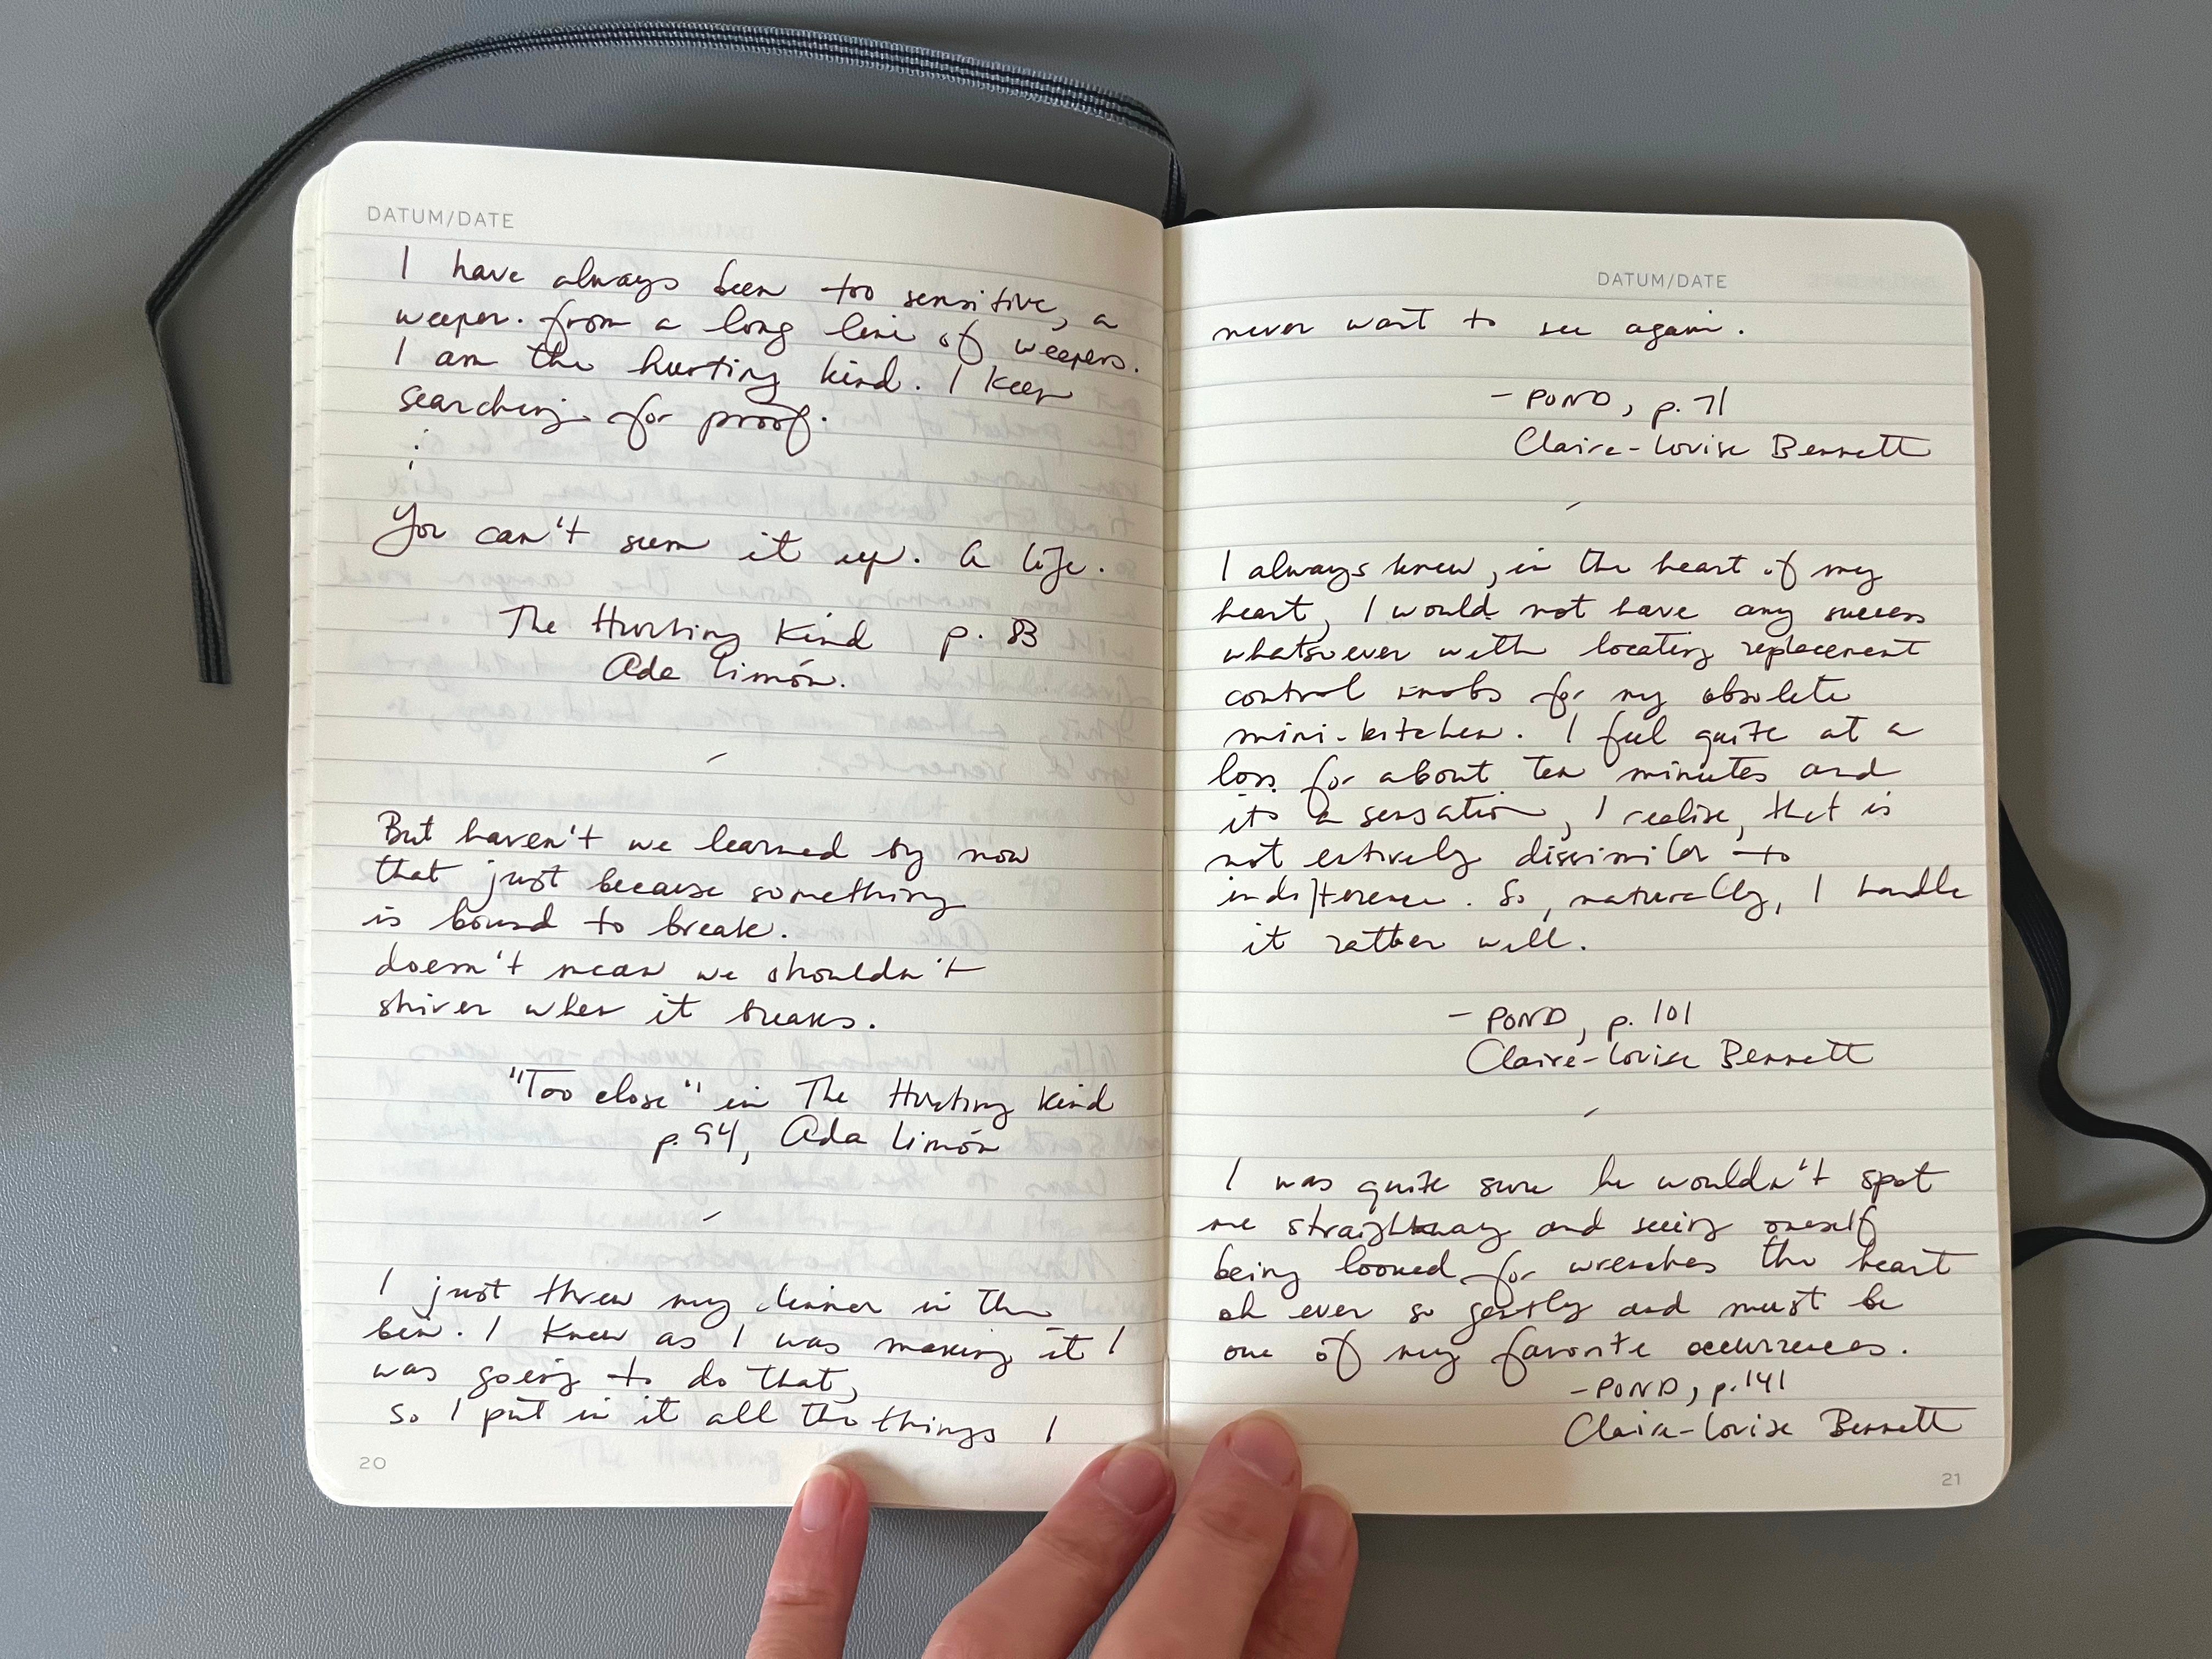 DATUM/DATE
I have always been too sensitive, a
weeper. from a long line of weepers.
I am the hurting kind. I keep
searching for proof.
:
You can't sum it up. A life.
The Hurting Kind p. 83
Ada Limón.
-
But haven't we learned by now
that just because something
is bound to break.
doesn't mean we shouldn't
shiver when it breaks.
"Too close" in The Hurting Kind
p. 94, Ada Limón
-
I just threw my dinner in the
bin. I knew as I was making it I
was going to do that,
so I put in it all the things I
20
DATUM/DATE
never want to see again.
- POND, p. 71
Claire-Louise Bennett
-
I always knew, in the heart of my
heart, I would not have any success
whatsoever with locating replacement
control knobs for my obsolete
mini-kitchen. I feel quite at a
loss for about ten minutes and
it's a sensation, I realise, that is
not entirely dissimilar to
indifference. So, naturally, I handle
it rather well.
- POND, p. 101
Claire-Louise Bennett
-
I was quite sure he wouldn't spot
me straightaway and seeing oneself
being looked for wrenches the heart
oh ever so gently and must be
one of my favorite occurrences.
- POND, p. 141
Claire-Louise Bennett
21